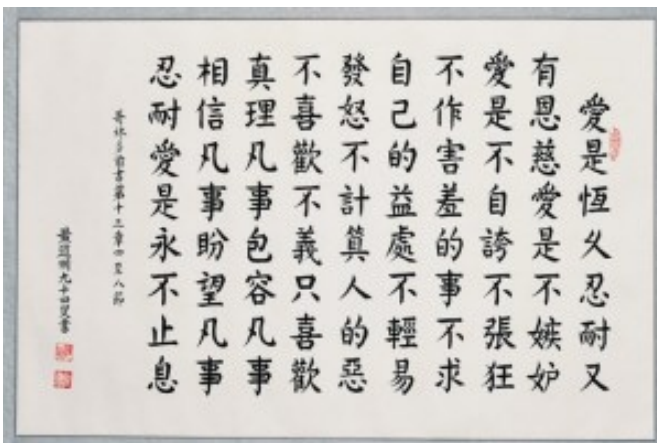 愛是恆久忍耐又
有恩慈愛是不嫉妒
愛是不自誇不張狂
不作害羞的事不求
自己的益處不輕易
發怒不計算人的惡
不喜歡不義只喜歡
真理凡事包容凡事
相信凡事盼望凡事
忍耐愛是永不止息
哥林多前書第十三章四至八節
九十四叟書